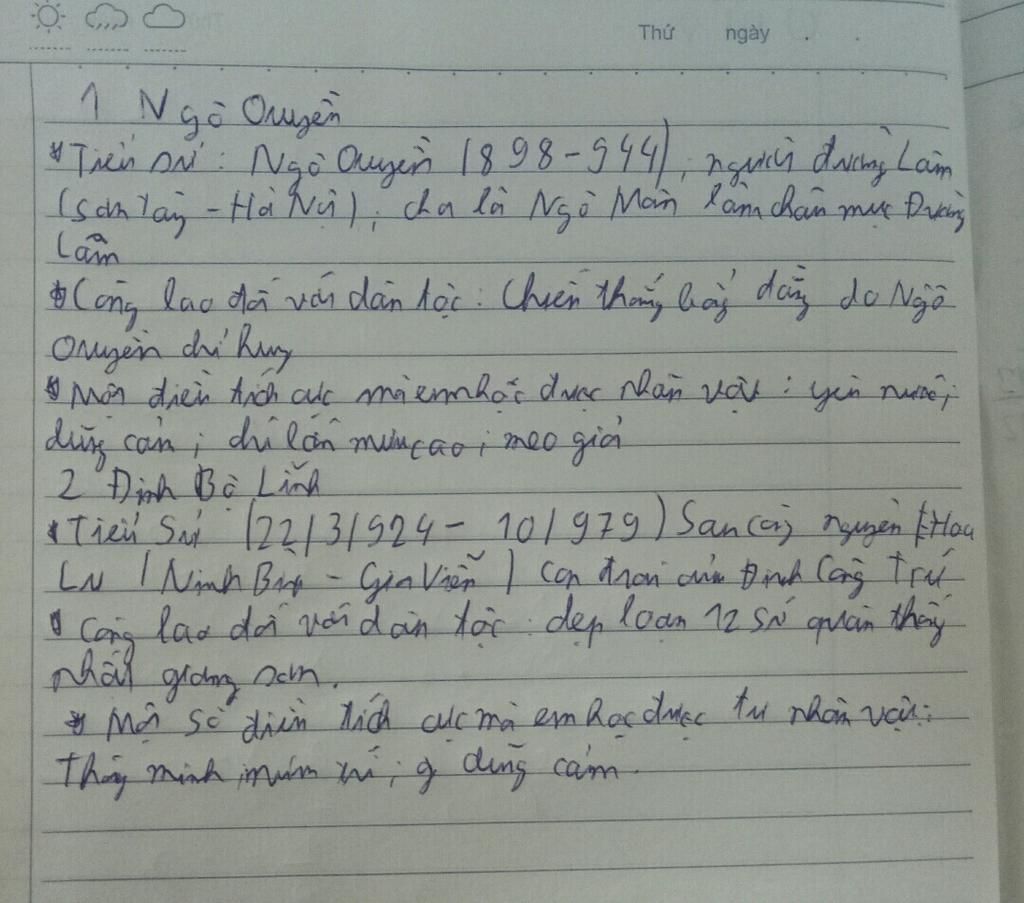 Thứ ngày . .
1 Ngô Quyền
* Tiểu sử : Ngô Quyền (898-944), người đường Lâm
(Sơn Tây - Hà Nội), cha là Ngô Mân làm châu mục Đường
Lâm
* Công lao đối với dân tộc : Chiến thắng bạch đằng do Ngô
Quyền chỉ huy
* Một điểm tích cực mà em học được nhân vật : yêu nước ;
dũng cảm ; chí lớn mưu cao ; mẹo giỏi
2 Đinh Bộ Lĩnh
* Tiểu sử (22/3/924 - 10/979) nguyên Hoa
Lư (Ninh Bình - Gia Viễn) con trai của Đinh Công Trứ
* Công lao đối với dân tộc : dẹp loạn 12 sứ quân thống
nhất giang sơn.
* Một số điểm tích cực mà em học được từ nhân vật :
Thông minh, mưu trí ; dũng cảm.